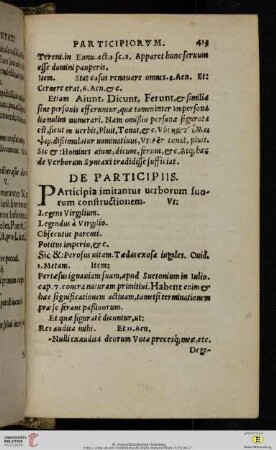 PARTICIPIORVM. 419
Terent. in Eunu. act. 2 sc. 2. Apparet hunc seruum
esse domini pauperis.
Item. Stat casus renouare omnes. 2. Aen. Et:
Cernere erat, 6. Aen. &c.
Etiam Aiunt, Dicunt, Ferunt, & similia
sine personis efferuntur, quæ tamen inter Impersona
lia nolim numerari. Nam omissio personæ figurata
est, sicut in uerbis, Pluit, Tonat, &c. Vbi
dissimulatur nominatiuus, Vt: Pater tonat, pluit.
Sic & : Homines aiunt, dicunt, ferunt, &c. Atq; hæc
de Verborum Syntaxi tradidisse sufficiat.
DE PARTICIPIIS.
PArticipia imitantur uerborum suo-
rum constructionem. Vt:
Legens Virgilium.
Legendus à Vergilio.
Obsecutus parenti.
Potitus imperio, &c.
Sic & : Perosus uitam. Tædas exosa iugales. Ouid.
1. Metam. Item:
Pertæsus ignauiam suam, apud Suetonium in Iulio.
cap. 7. contra naturam primitiui. Habent enim &
hæc significationem actiuam, tametsi terminationem
præ se ferant passiuorum.
Et quæ figuratè dicuntur, ut:
Res audita mihi. Et 11. Aen.
-Nulli exaudita deorum Vota precesq; meæ, etc.
Dege-